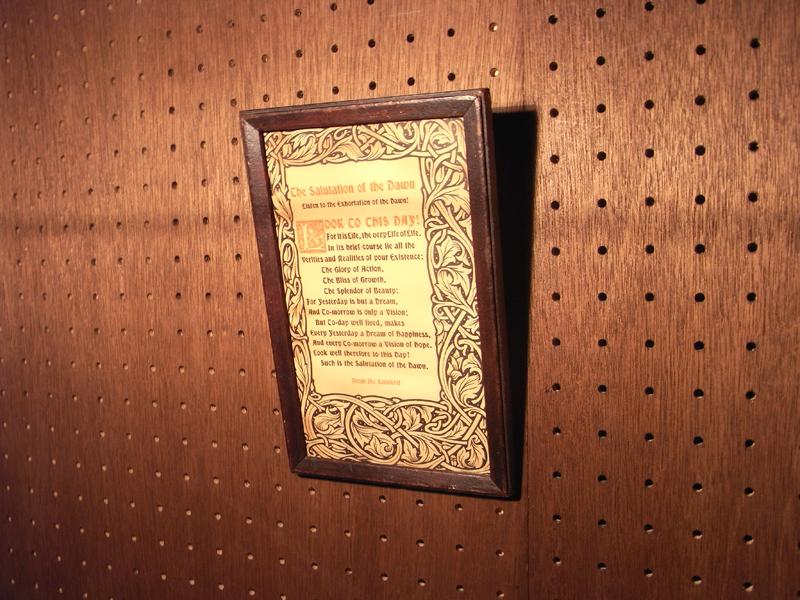 The Salutation of the Dawn
Listen to the Exhortation of the Dawn!
LOOK TO THIS DAY!
For it is Life, the very Life of Life.
In its brief course lie all the
Verities and Realities of your Existence:
The Glory of Action,
The Bliss of Growth,
The Splendor of Beauty;
For Yesterday is but a Dream,
And To-morrow is only a Vision;
But To-day well lived, makes
Every Yesterday a Dream of Happiness,
And every To-morrow a Vision of Hope.
Look well therefore to this Day!
Such is the Salutation of the Dawn.
From the Sanskrit